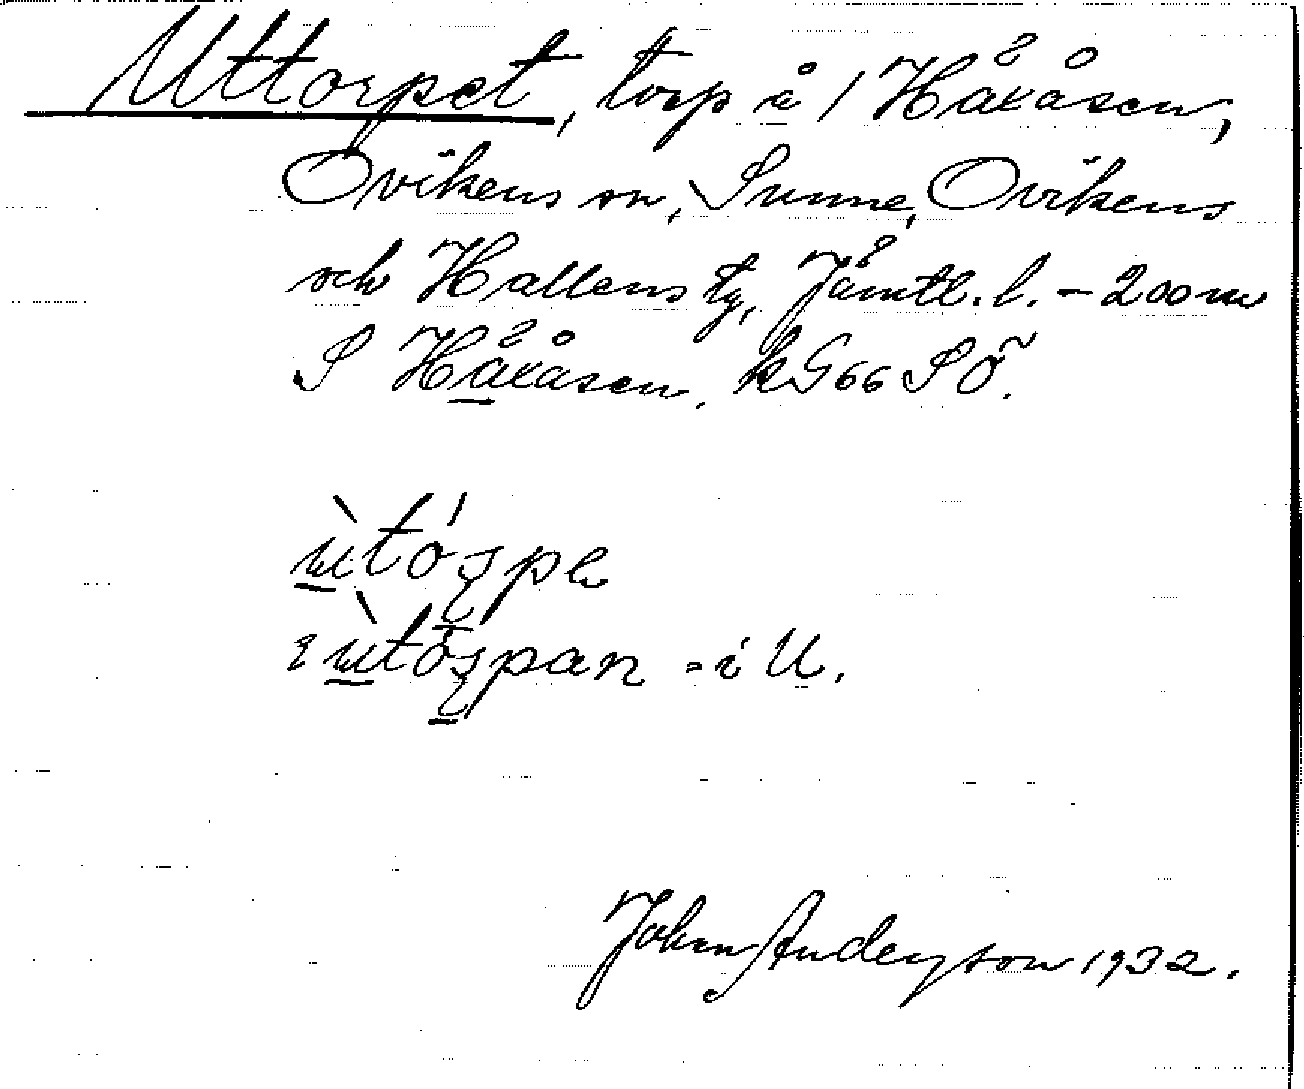 Uttorpet, torp å 1 Håxåsen,
Ovikens sn, Sunne, Ovikens
och Hallens tg, Jämtl. l. - 200 m
S Håxåsen. k G 66 S Ö.
ùtó̱spe
ı ùtó̱span - i U.
John Anderson 1932.